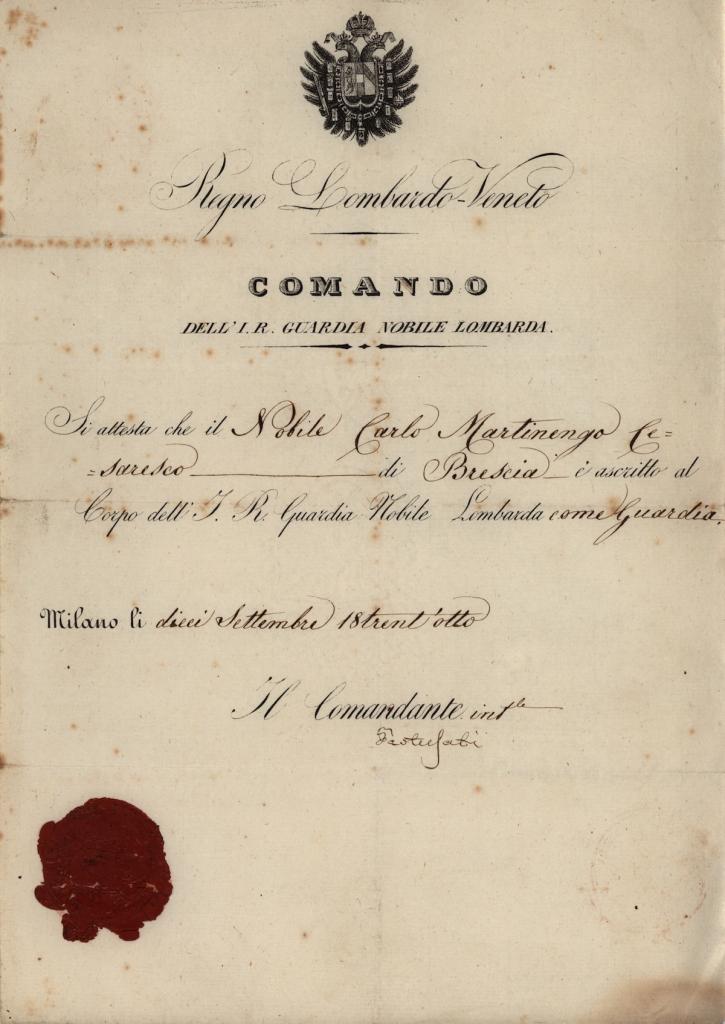 Regno Lombardo-Veneto
COMANDO
DELL' I. R. GUARDIA NOBILE LOMBARDA.
Si attesta che il Nobile Carlo Martinengo Ce=
=saresco di Brescia è ascritto al
Corpo dell' I. R. Guardia Nobile Lombarda come Guardia.
Milano li dieci Settembre 18trent'otto
Il Comandante int.le